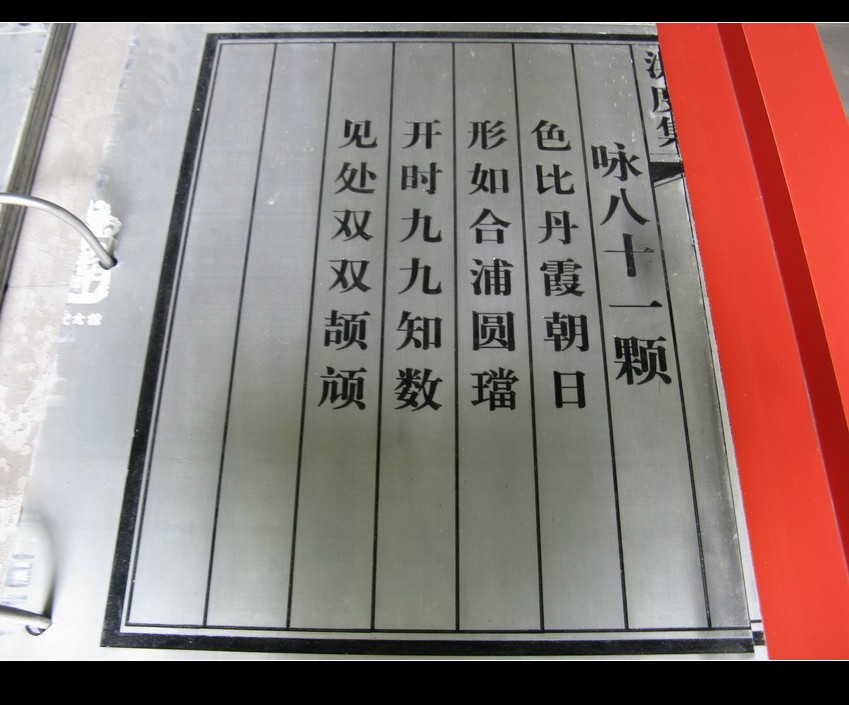 咏八十一颗
色比丹霞朝日
形如合浦圆璫
开时九九知数
见处双双颉颃